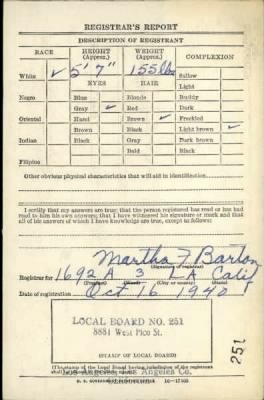 REGISTRAR'S REPORT
DESCRIPTION OF REGISTRANT
RACE HEIGHT (Approx.) WEIGHT (Approx.) COMPLEXION
White ✓ 5' 7" 155 lb Sallow
EYES HAIR Light
Negro Blue Blonde Ruddy
Gray ✓ Red Dark
Oriental Hazel Brown ✓ Freckled
Brown Black Light brown ✓
Indian Black Gray Dark brown
Bald Black
Filipino
Other obvious physical characteristics that will aid in identification
I certify that my answers are true; that the person registered has read or has had
read to him his own answers; that I have witnessed his signature or mark and that
all of his answers of which I have knowledge are true, except as follows:
Martha F Barton
(Signature of registrar)
Registrar for 1692 A 3 LA Calif
Date of registration Oct 16 1940
LOCAL BOARD NO. 251
8881 West Pico St.
251
(STAMP OF LOCAL BOARD)
(The stamp of the Local Board having jurisdiction of the registrant
Los Angeles, Los Angeles Co.
U. S. GOVERNMENT PRINTING OFFICE 16—17105